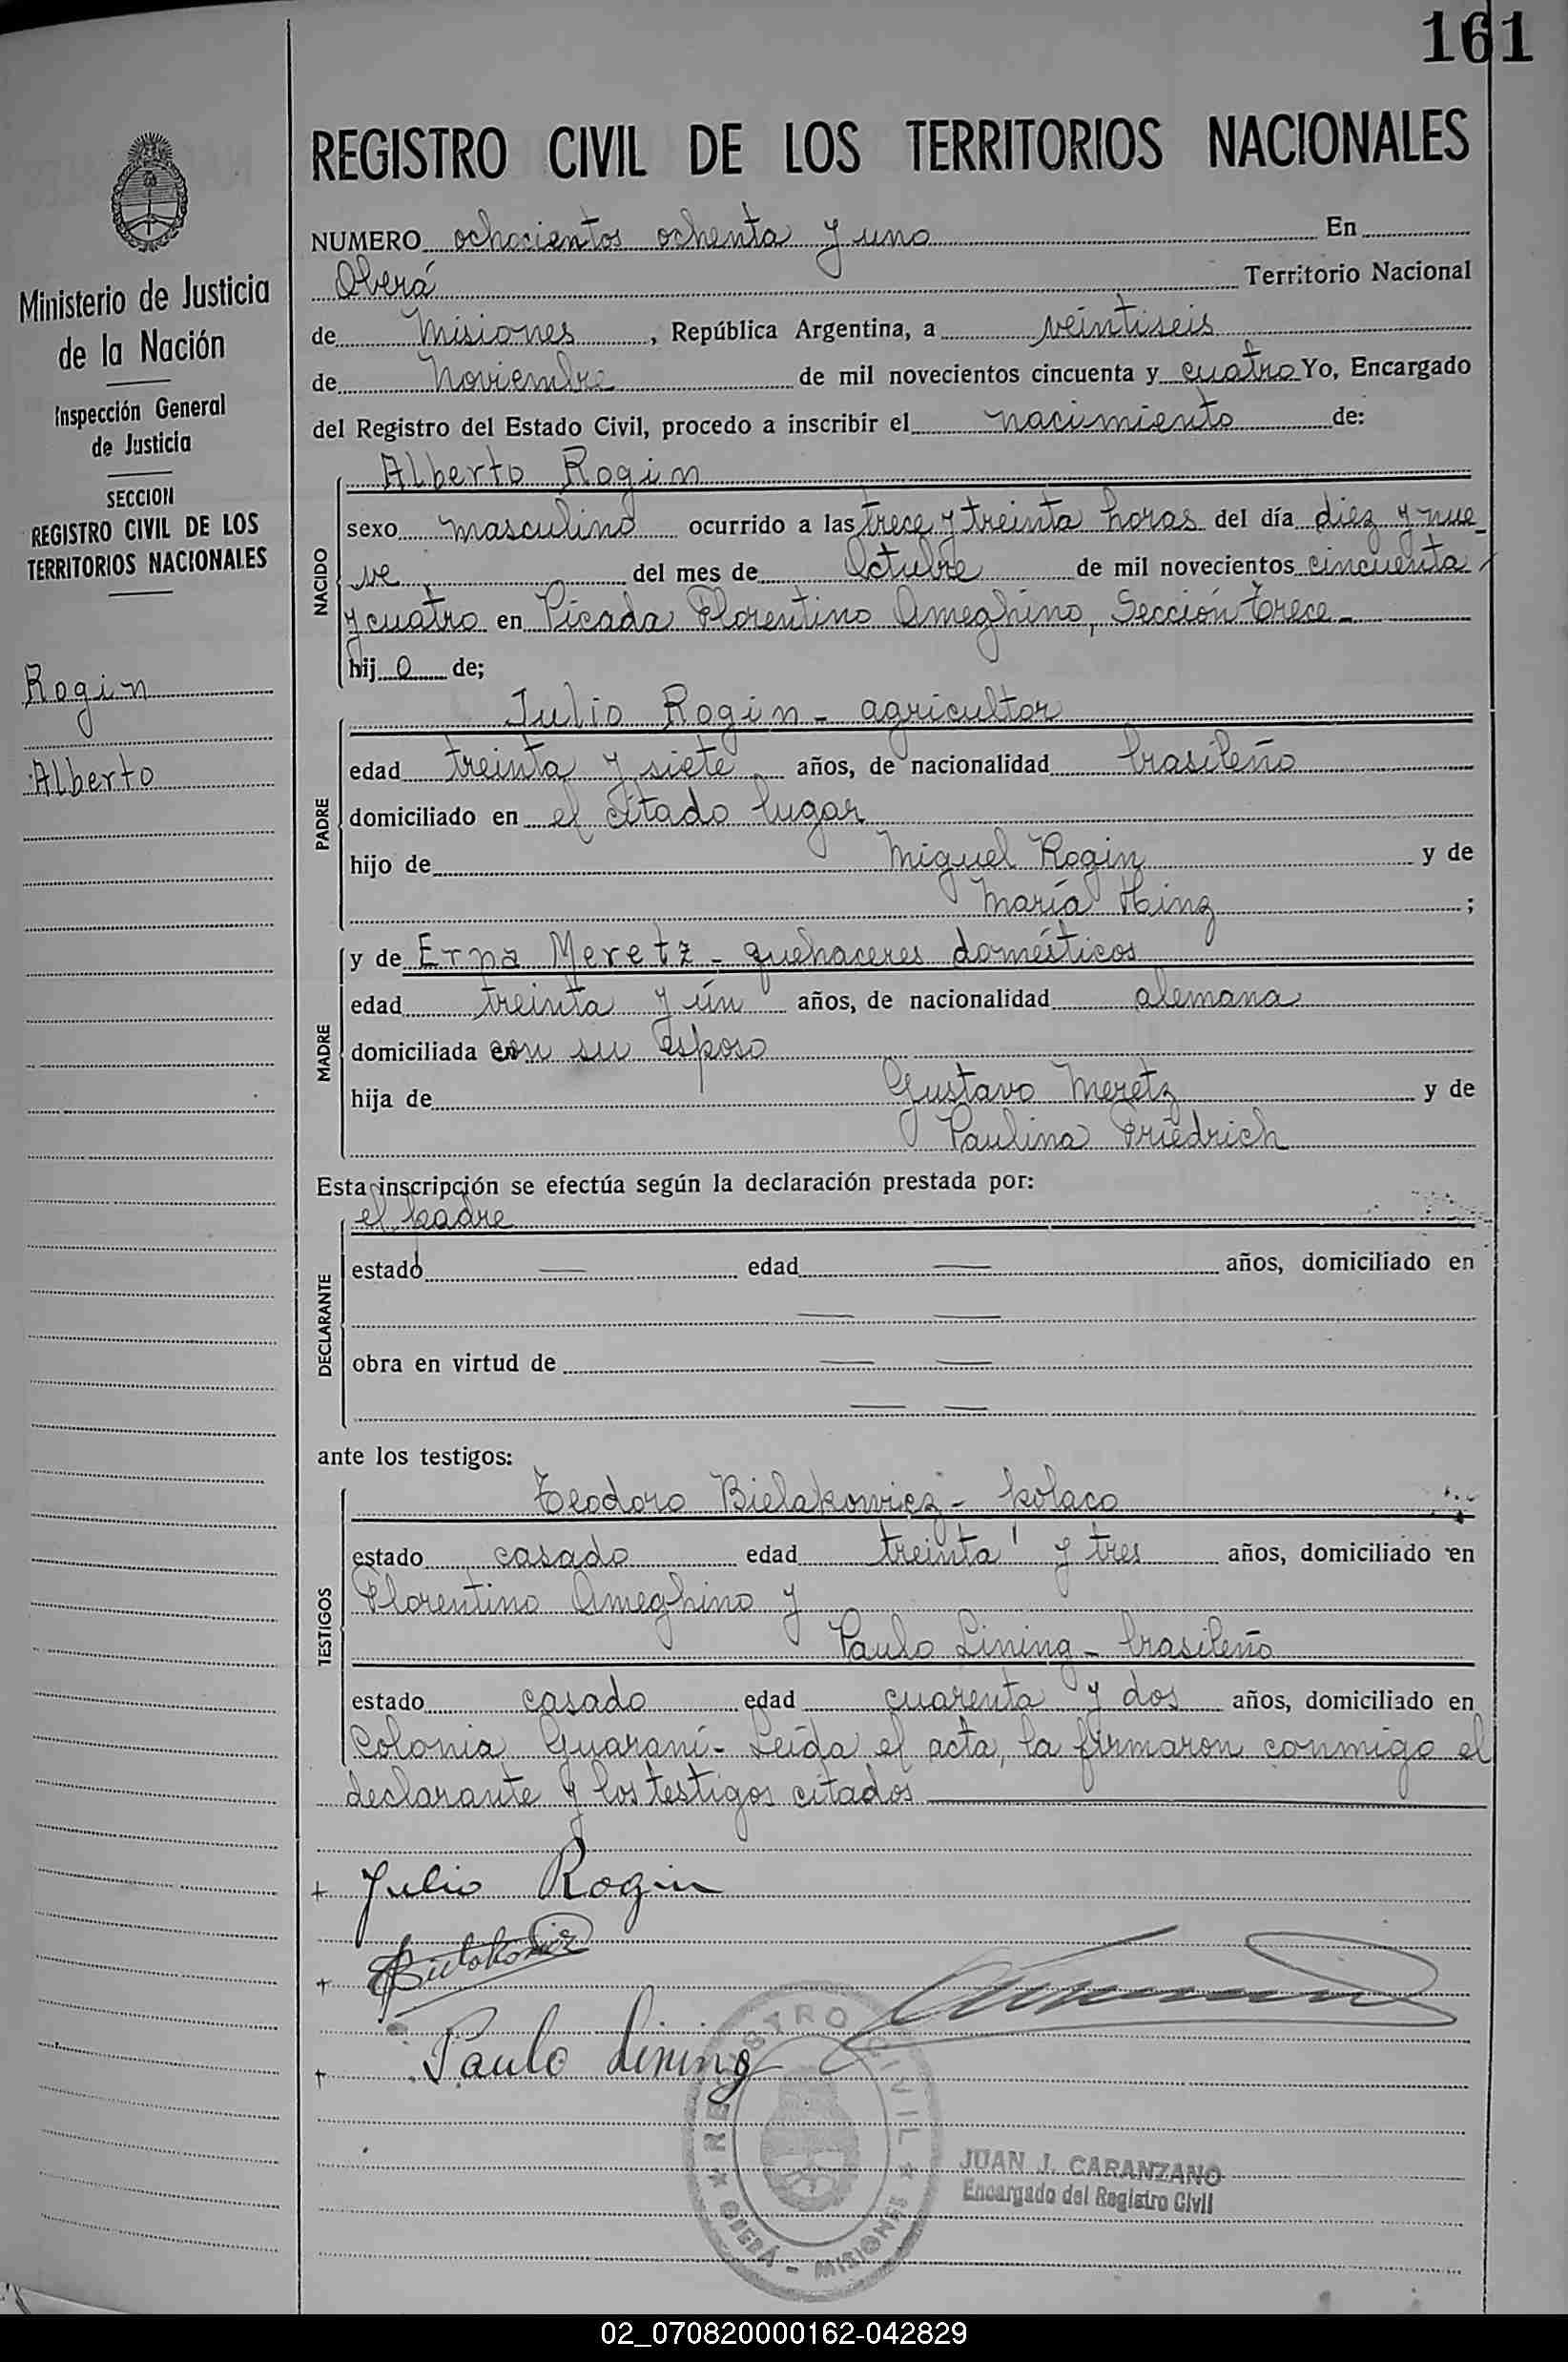 161
REGISTRO CIVIL DE LOS TERRITORIOS NACIONALES
Ministerio de Justicia
de la Nación
Inspección General
de Justicia
SECCION
REGISTRO CIVIL DE LOS
TERRITORIOS NACIONALES
Rogin
Alberto
NUMERO ochocientos ochenta y uno En
Oberá Territorio Nacional
de Misiones, República Argentina, a veintiseis
de Noviembre de mil novecientos cincuenta y cuatro Yo, Encargado
del Registro del Estado Civil, procedo a inscribir el nacimiento de:
NACIDO
Alberto Rogin
sexo masculino ocurrido a las trece y treinta horas del día diez y nue-
ve del mes de Octubre de mil novecientos cincuenta
y cuatro en Picada Florentino Ameghino, Sección trece-
hijo de;
PADRE
Julio Rogin - agricultor
edad treinta y siete años, de nacionalidad brasileño
domiciliado en el citado lugar
hijo de Miguel Rogin y de
María Hinz ;
MADRE
y de Erna Meretz - quehaceres domésticos
edad treinta y ún años, de nacionalidad alemana
domiciliada en con su esposo
hija de Gustavo Meretz y de
Paulina Friedrich
Esta inscripción se efectúa según la declaración prestada por:
DECLARANTE
el padre
estado — edad — años, domiciliado en
— —
obra en virtud de — —
— —
ante los testigos:
TESTIGOS
Teodoro Bielakowicz - polaco
estado casado edad treinta y tres años, domiciliado en
Florentino Ameghino y
Paulo Lining - brasileño
estado casado edad cuarenta y dos años, domiciliado en
Colonia Guaraní - Leída el acta, la firmaron conmigo el
declarante y los testigos citados
+ Julio Rogin
+ Bielakowicz
+ Paulo Lining
REGISTRO CIVIL
OBERÁ - MISIONES
JUAN J. CARANZANO
Encargado del Registro Civil
02_070820000162-042829